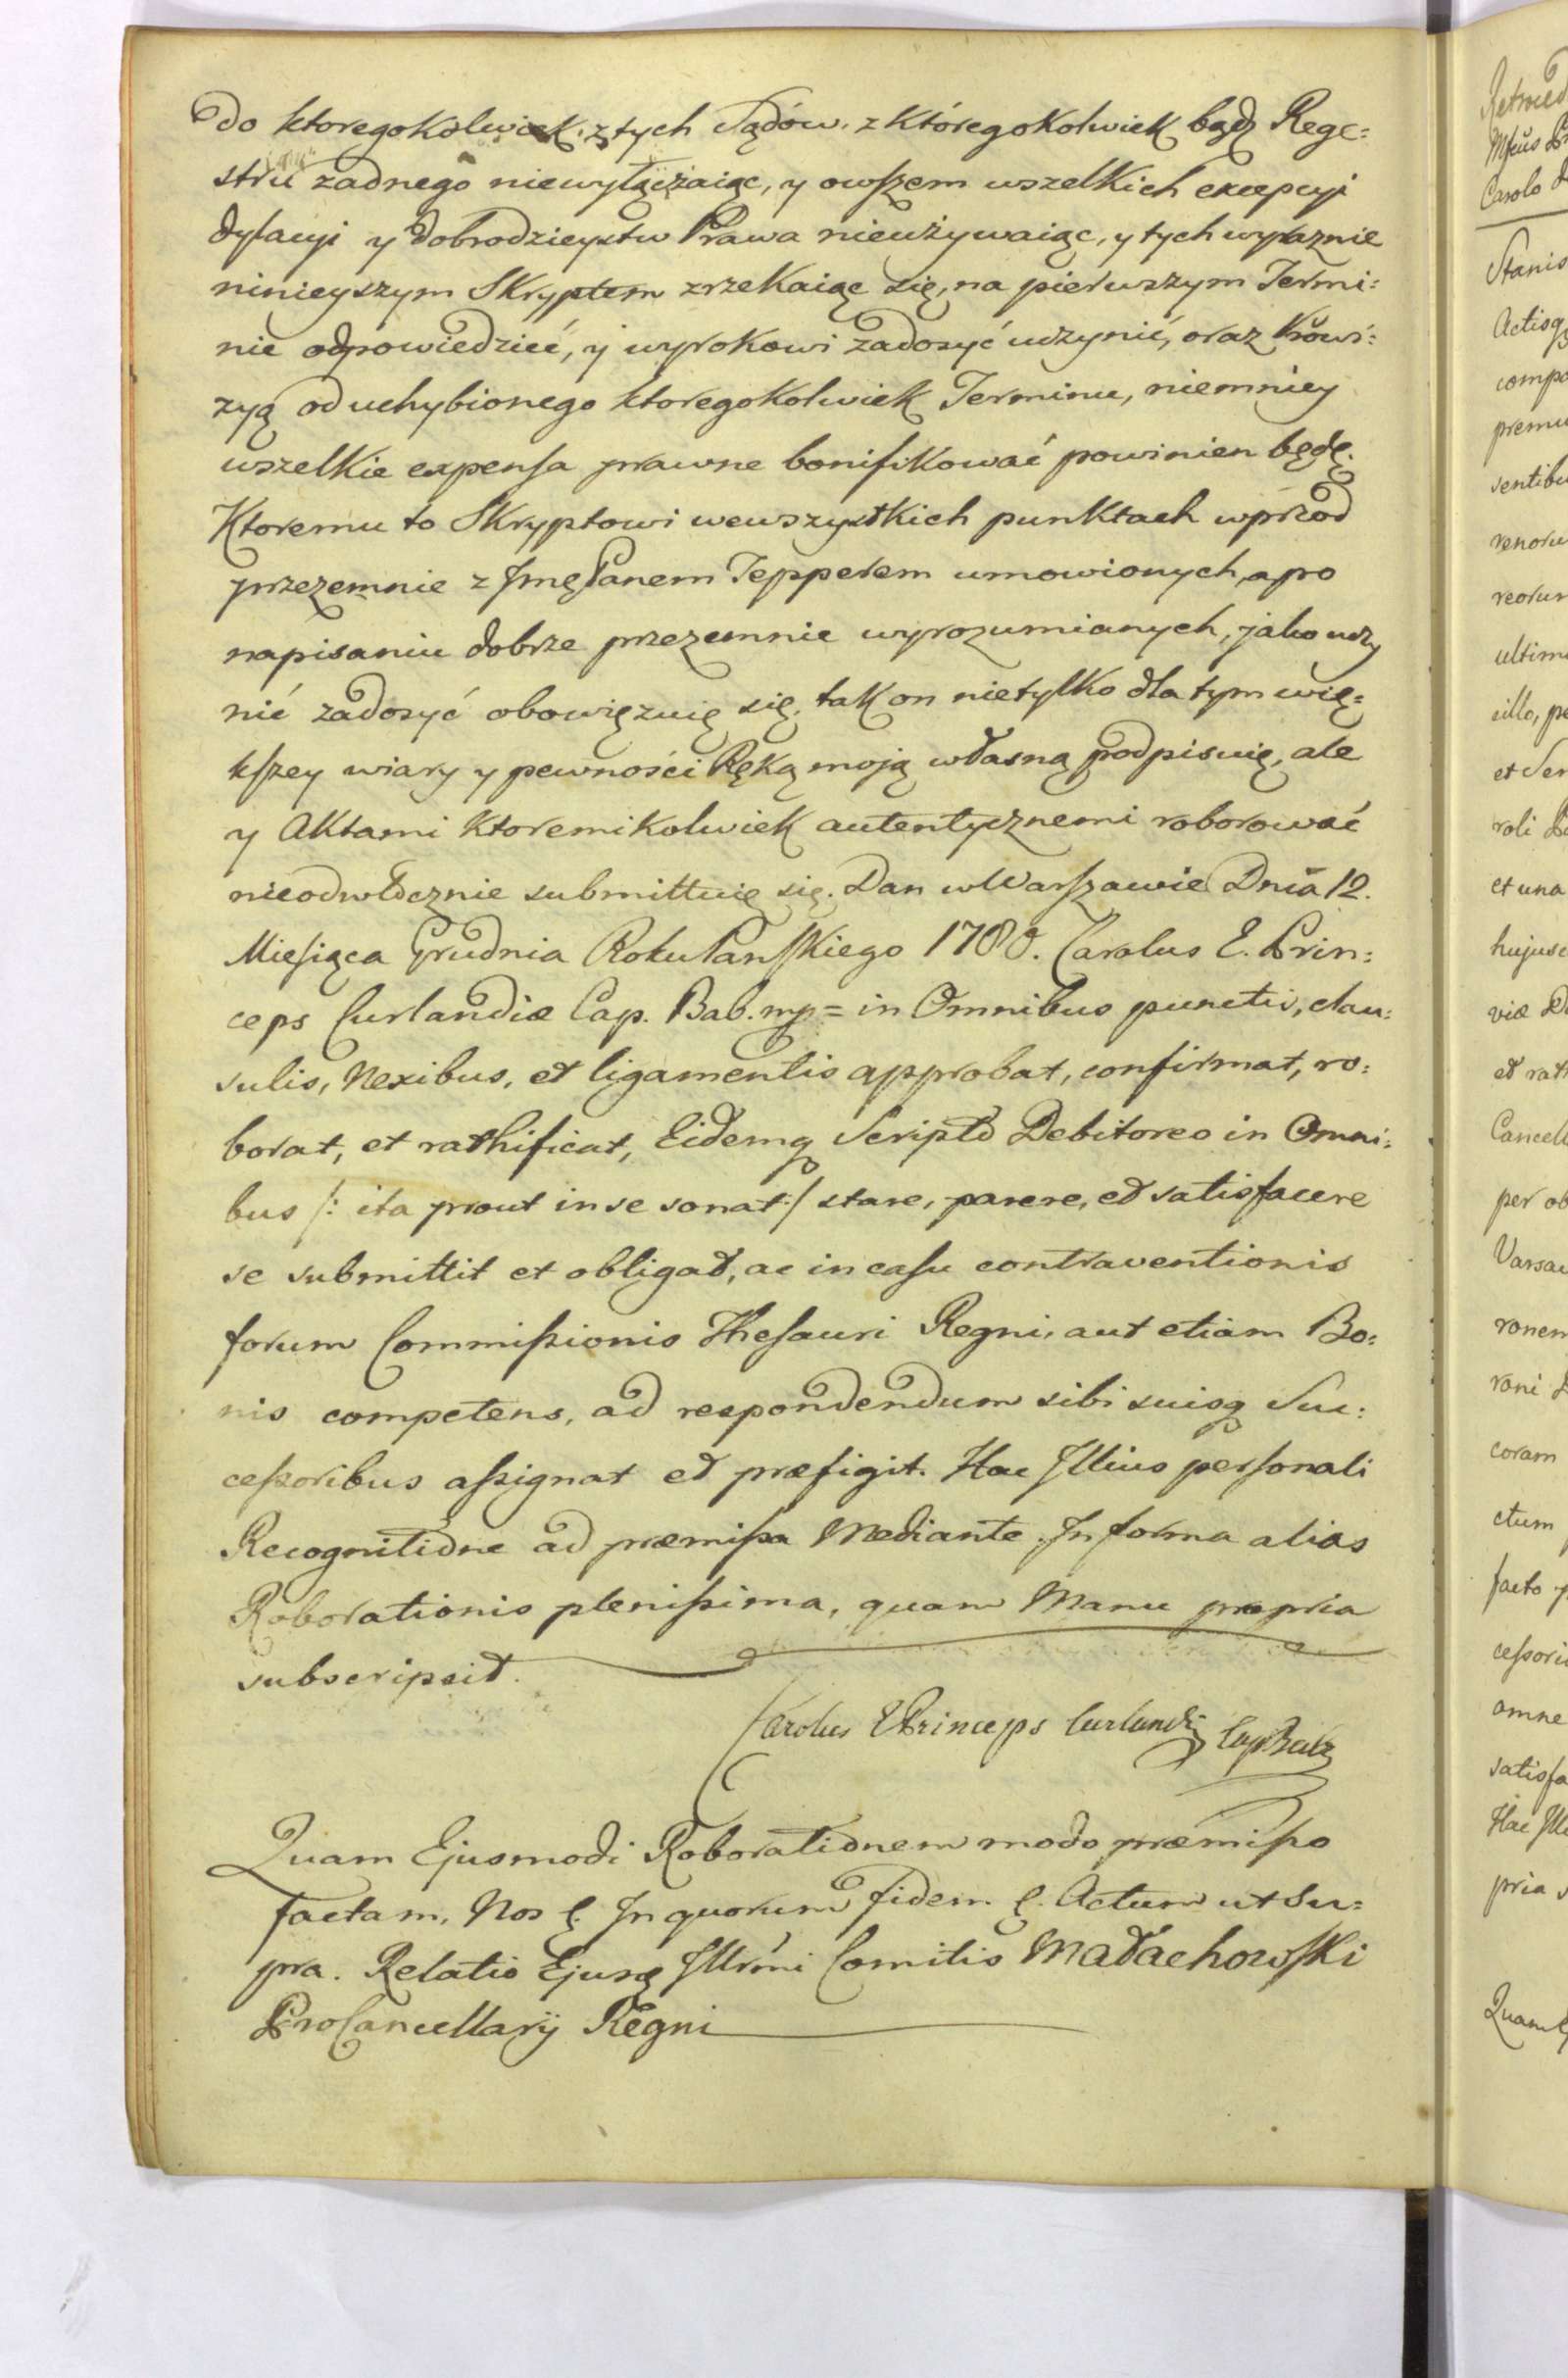 do ktoregokolwiek z tych Sądów, z któregokolwiek bądz Rege:
stru zadnego niewyłączaiąc, y owszem wszelkich excepcyi
dylacyi y dobrodzieystw Prawa nieużywaiąc, y tych wyraznie
ninieyszym Skryptem zrzekaiąc się, na pierwszym Termi:
nie odpowiedzieć, y wyrokowi zadosyć uczynić, oraz Prowi:
zyą od uchybionego ktoregokolwiek Terminu, niemniey
wszelkie expensa prawne bonifikować powinien będę.
Ktoremu to Skryptowi we wszystkich punktach wprzod
przezemnie z Jmę Panem Tepperem umowionych, a po
napisaniu dobrze przezemnie wyrozumianych, jako uczy
nić zadosyć obowięzuię się, tak on nietylko dla tym wię:
kszey wiary y pewności Ręką moją własną podpisuię, ale
y Aktami ktoremikolwiek autentycznemi roborować
nieodwłocznie submittuię się. Dan w Warszawie Dnia 12.
Miesiąca Grudnia Roku Panskiego 1780. Carolus E. Prin:
ceps Curlandiæ Cap. Bab. mp = in Omnibus punctis, clau:
sulis, Nexibus, et ligamentis approbat, confirmat, ro:
borat, et rathificat, Eidemq Scripto Debitoreo in Omni:
bus /: ita prout in se sonat :/ stare, parere, et satisfacere
se submittit et obligat, ac in casu contraventionis
forum Commissionis Thesauri Regni, aut etiam Bo:
nis competens, ad respondendum sibi suisq Suc:
cessoribus assignat et præfigit. Hac Illius personali
Recognitione ad præmissa Mediante. In forma alias
Roborationis plenissima, quam Manu propria
subscripsit.
Carolus E Princeps Curlandiæ Cap Bab
Quam Ejusmodi Roborationem modo præmisso
factam, Nos &. In quorum fidem &. Actum ut Su:
pra. Relatio Ejusq Illrmi Comitis Małachowski
ProCancellarij Regni
Stanis
compo
ultim
et Ser
et una
Cancell
per ob
Varsav
ronem
coram
ctum
omne
satisfa
pria s